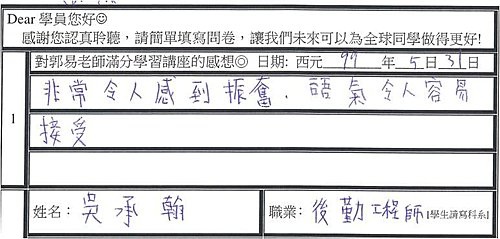 Dear 學員您好☺
感謝您認真聆聽，請簡單填寫問卷，讓我們未來可以為全球同學做得更好!
對郭易老師滿分學習講座的感想☺ 日期: 西元 99 年 5 日 31 日
1
非常令人感到振奮、語氣令人容易
接受
姓名: 吳承翰 職業: 後勤工程師 [學生請寫科系]